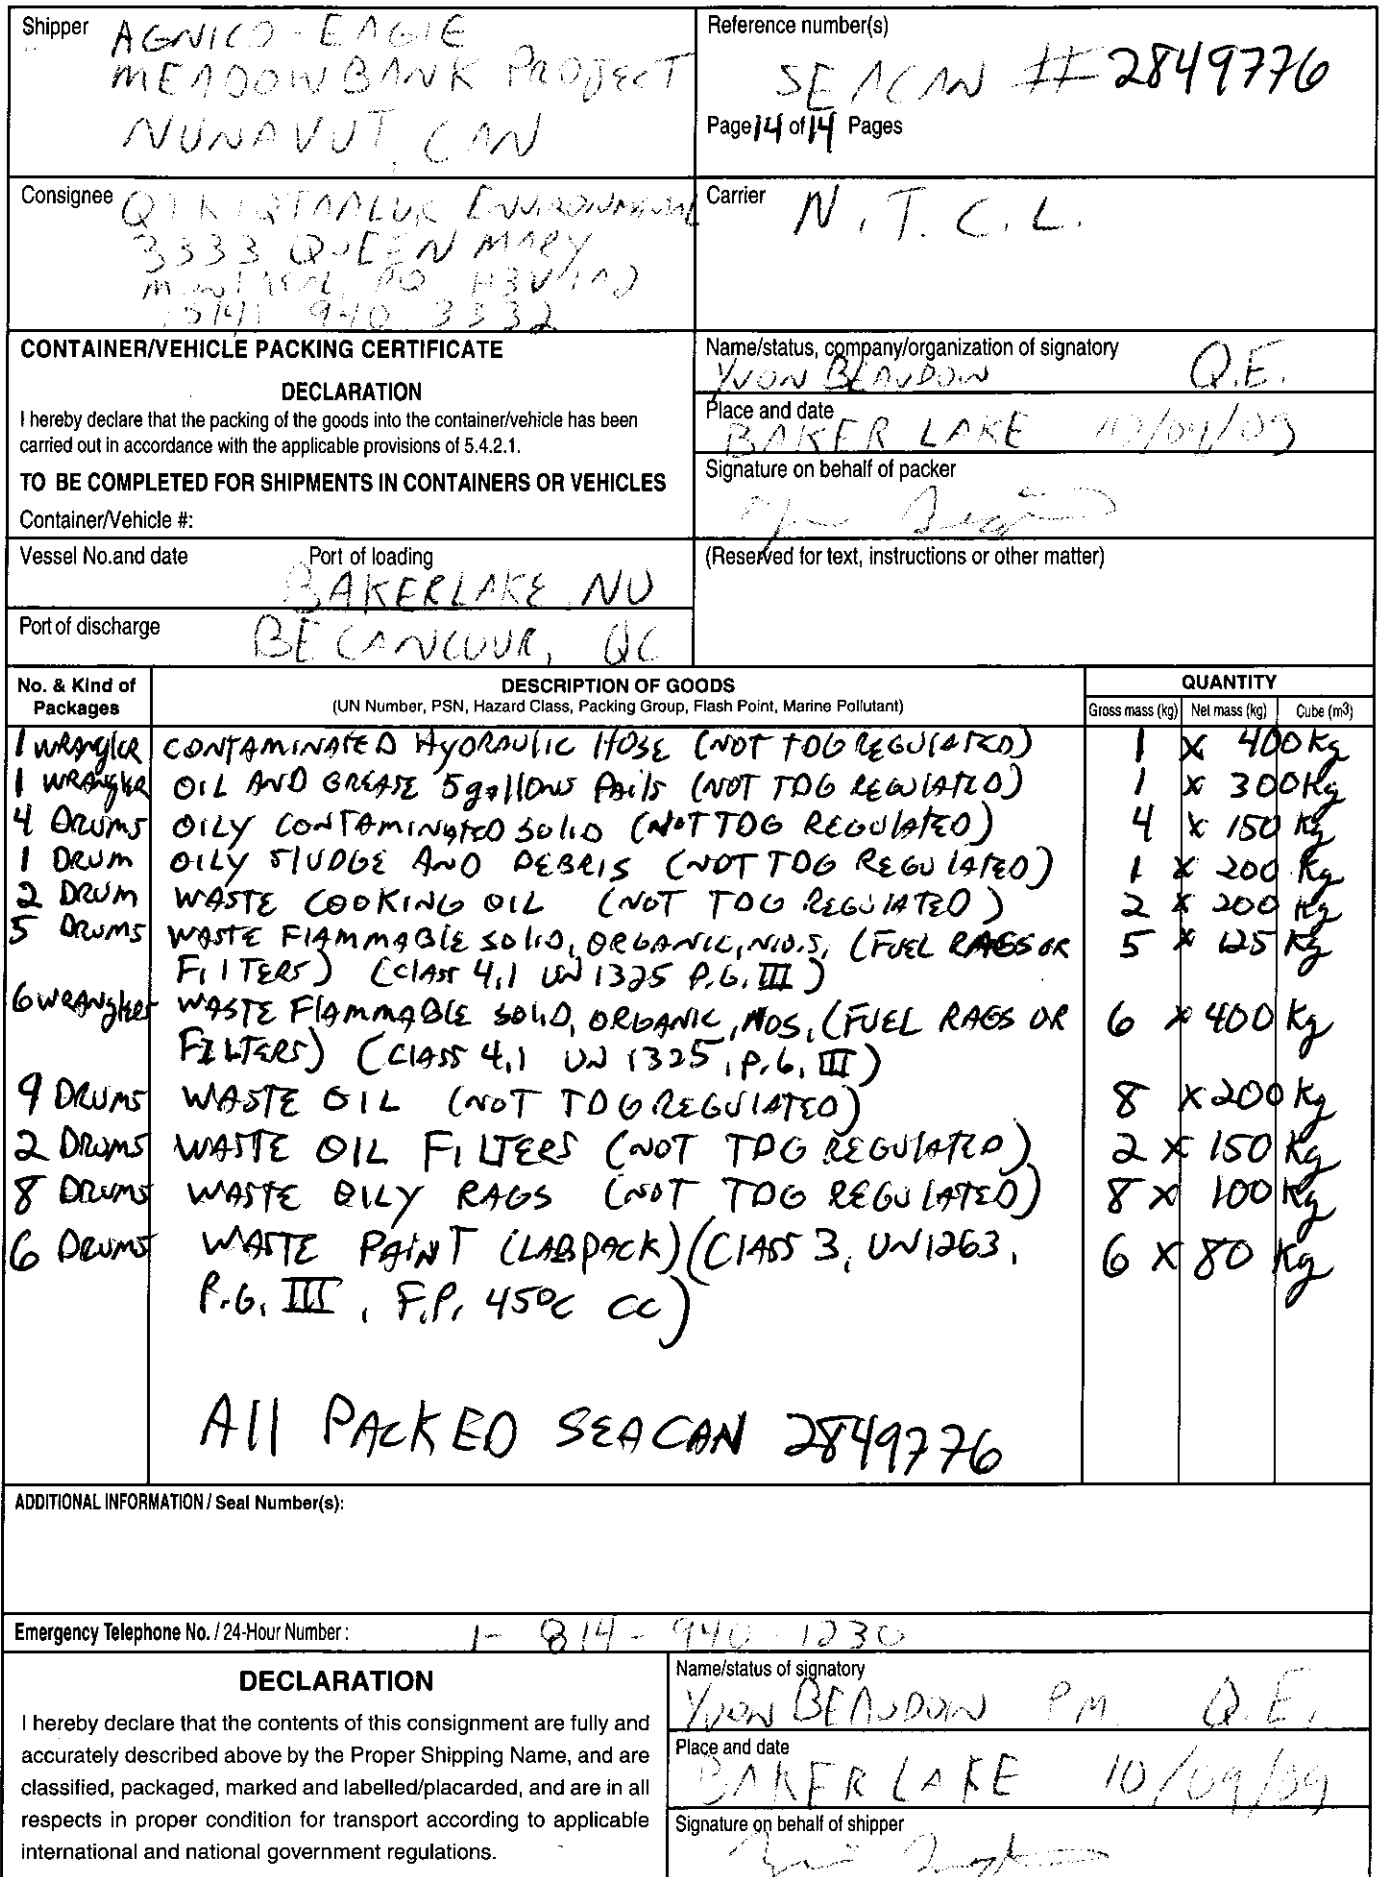 Shipper AGNICO-EAGIE
MEADOWBANK PROJECT
NUNAVUT, CAN
Reference number(s)
SEACAN # 2849776
Page 14 of 14 Pages
Consignee QIKIQTAALUK ENVIRONMENTAL
3333 QUEEN MARY
(514) 940 3332
Carrier N.T.C.L.
CONTAINER/VEHICLE PACKING CERTIFICATE
DECLARATION
I hereby declare that the packing of the goods into the container/vehicle has been
carried out in accordance with the applicable provisions of 5.4.2.1.
TO BE COMPLETED FOR SHIPMENTS IN CONTAINERS OR VEHICLES
Container/Vehicle #:
Name/status, company/organization of signatory
YVON BEAUDOIN Q.E.
Place and date
BAKER LAKE 10/09/09
Signature on behalf of packer
Vessel No.and date Port of loading
BAKERLAKE NU
(Reserved for text, instructions or other matter)
Port of discharge BECANCOUR, QC
No. & Kind of Packages
DESCRIPTION OF GOODS
(UN Number, PSN, Hazard Class, Packing Group, Flash Point, Marine Pollutant)
QUANTITY
Gross mass (kg) Net mass (kg) Cube (m3)
1 WRANGLER CONTAMINATED HYDRAULIC HOSE (NOT TDG REGULATED) 1 x 400 Kg
1 WRANGLER OIL AND GREASE 5 gallons Pails (NOT TDG REGULATED) 1 x 300 Kg
4 DRUMS OILY CONTAMINATED SOLID (NOT TDG REGULATED) 4 x 150 Kg
1 DRUM OILY SLUDGE AND DEBRIS (NOT TDG REGULATED) 1 x 200 Kg
2 DRUM WASTE COOKING OIL (NOT TDG REGULATED) 2 x 200 Kg
5 DRUMS WASTE FLAMMABLE SOLID, ORGANIC, N.O.S, (FUEL RAGS OR 5 x 125 Kg
FILTERS) (CLASS 4,1 UN 1325 P.G. III)
6 WRANGLER WASTE FLAMMABLE SOLID, ORGANIC, NOS, (FUEL RAGS OR 6 x 400 Kg
FILTERS) (CLASS 4,1 UN 1325, P.G. III)
9 DRUMS WASTE OIL (NOT TDG REGULATED) 8 x 200 Kg
2 DRUMS WASTE OIL FILTERS (NOT TDG REGULATED) 2 x 150 Kg
8 DRUMS WASTE OILY RAGS (NOT TDG REGULATED) 8 x 100 Kg
6 DRUMS WASTE PAINT (LABPACK) (CLASS 3, UN1263, 6 x 80 Kg
P.G. III, F.P, 45°C CC)
All PACKED SEACAN 2849776
ADDITIONAL INFORMATION / Seal Number(s):
Emergency Telephone No. / 24-Hour Number: 1-814-940-1230
DECLARATION
I hereby declare that the contents of this consignment are fully and
accurately described above by the Proper Shipping Name, and are
classified, packaged, marked and labelled/placarded, and are in all
respects in proper condition for transport according to applicable
international and national government regulations.
Name/status of signatory
YVON BEAUDOIN PM Q.E.
Place and date
BAKER LAKE 10/09/09
Signature on behalf of shipper